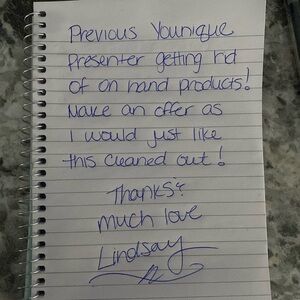 Previous Younique
Presenter getting rid
of on hand products!
Make an offer as
I would just like
this cleaned out!
Thanks &
much love
Lindsay